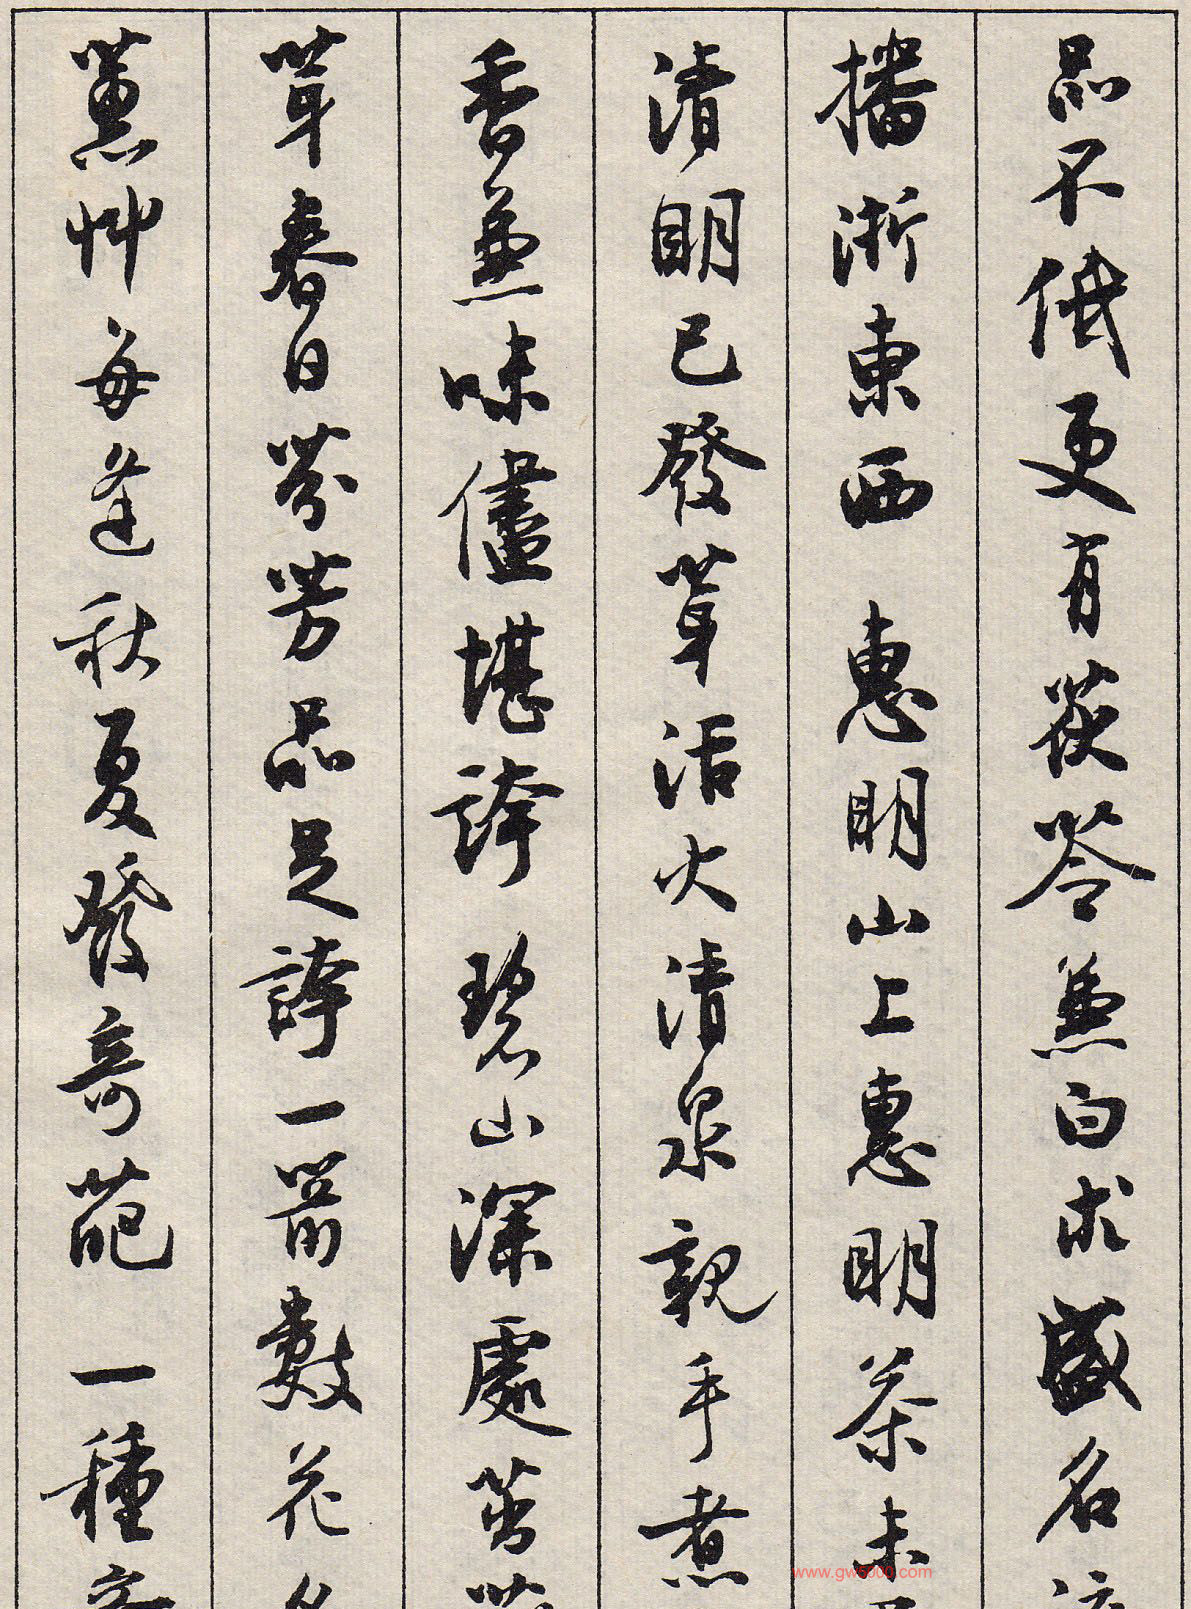 品不低更有茯苓兼白朮盛名流
播浙東西 惠明山上惠明茶未
清明已發芽活火清泉親手煮
香兼味儘堪誇 碧山深處茁
茸春日芬芳品足誇一箭數花
薰艸每逢秋夏發奇葩 一種奇
www.gw5000.com